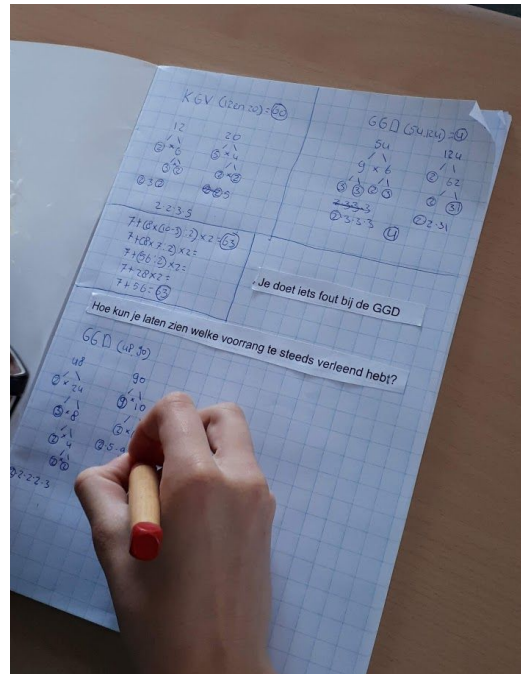 KGV (12 en 20) = 60
12
2 * 6
3 2
2 3 2
20
5 * 4
2 * 2
2 2 5
2.2.3.5
GGD (54,124) = 4
54
9 * 6
3 3 2 3
2.3.3.3
2.3.3.3
4
124
2
62
2 31
2.2.31
7+(8×(10-3):2)×2=63
7+(8×7:2)×2=
7+(56:2)×2=
7+28×2=
7+56=63
Je doet iets fout bij de GGD
Hoe kun je laten zien welke voorrang te steeds verleend hebt?
GGD (48,90)
48
2 * 24
3 * 8
2 * 4
2 2
2.2.2.2.3
90
9 * 10
2 *